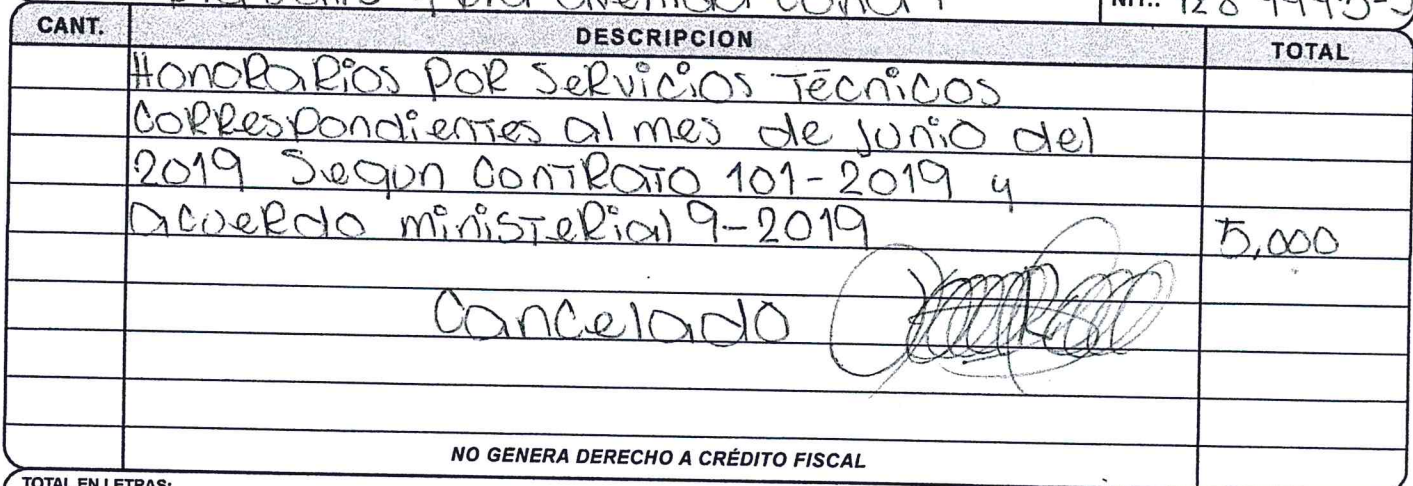 avenida zona 1 NIT.:
CANT. DESCRIPCION TOTAL
Honorarios por Servicios Técnicos
Correspondientes al mes de Junio del
2019 Segun Contrato 101-2019 y
acuerdo ministerial 9-2019 5,000
Cancelado
NO GENERA DERECHO A CRÉDITO FISCAL
TOTAL EN LETRAS: